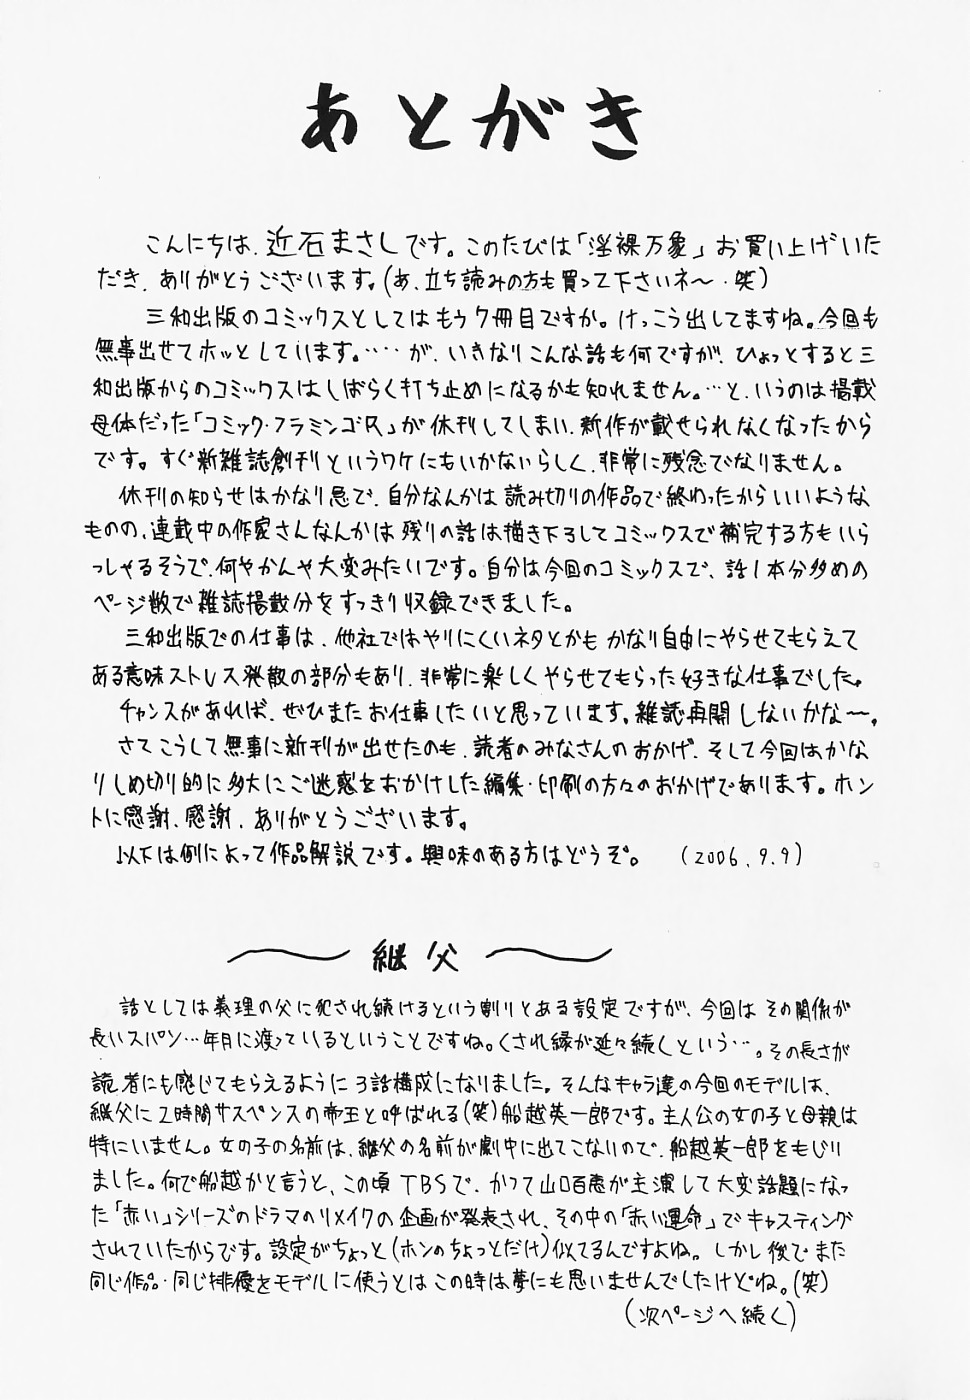 あとがき
こんにちは、近石まさしです。このたびは「淫裸万象」お買い上げいた
だき、ありがとうございます。(あ、立ち読みの方も買って下さいネ〜・笑)
三和出版のコミックスとしてはもう7冊目ですか。けっこう出してますね。今回も
無事出せてホッとしています。‥‥が、いきなりこんな話も何ですが、ひょっとすると三
和出版からのコミックスはしばらく打ち止めになるかも知れません。…と、いうのは掲載
母体だった「コミック・フラミンゴR」が休刊してしまい、新作が載せられなくなったから
です。すぐ新雑誌創刊というワケにもいかないらしく、非常に残念でなりません。
休刊の知らせはかなり急で、自分なんかは読み切りの作品で終わったからいいような
ものの、連載中の作家さんなんかは残りの話は描き下ろしてコミックスで補完する方もいら
っしゃるそうで、何やかんや大変みたいです。自分は今回のコミックスで、話1本分多めの
ページ数で雑誌掲載分をすっきり収録できました。
三和出版での仕事は、他社ではやりにくいネタとかもかなり自由にやらせてもらえて
ある意味ストレス発散の部分もあり、非常に楽しくやらせてもらった好きな仕事でした。
チャンスがあれば、ぜひまたお仕事したいと思っています。雑誌再開しないかな〜。
さてこうして無事に新刊が出せたのも、読者のみなさんのおかげ、そして今回はかな
りしめ切り的に多大にご迷惑をおかけした編集・印刷の方々のおかげであります。ホン
トに感謝、感謝、ありがとうございます。
以下は例によって作品解説です。興味のある方はどうぞ。 (2006.9.9)
〜継父〜
話としては義理の父に犯され続けるという割りとある設定ですが、今回はその関係が
長いスパン…年月に渡っているということですね。くされ縁が延々続くという…。その長さが
読者にも感じてもらえるように3話構成になりました。そんなキャラ達の今回のモデルは、
継父に2時間サスペンスの帝王と呼ばれる(笑)船越英一郎です。主人公の女の子と母親は
特にいません。女の子の名前は、継父の名前が劇中に出てこないので、船越英一郎をもじり
ました。何で船越かと言うと、この頃TBSで、かつて山口百恵が主演して大変話題になっ
た「赤い」シリーズのドラマのリメイクの企画が発表され、その中の「赤い運命」でキャスティング
されていたからです。設定がちょっと(ホンのちょっとだけ)似てるんですよね。しかし後でまた
同じ作品・同じ俳優をモデルに使うとはこの時は夢にも思いませんでしたけどね。(笑)
(次ページへ続く)